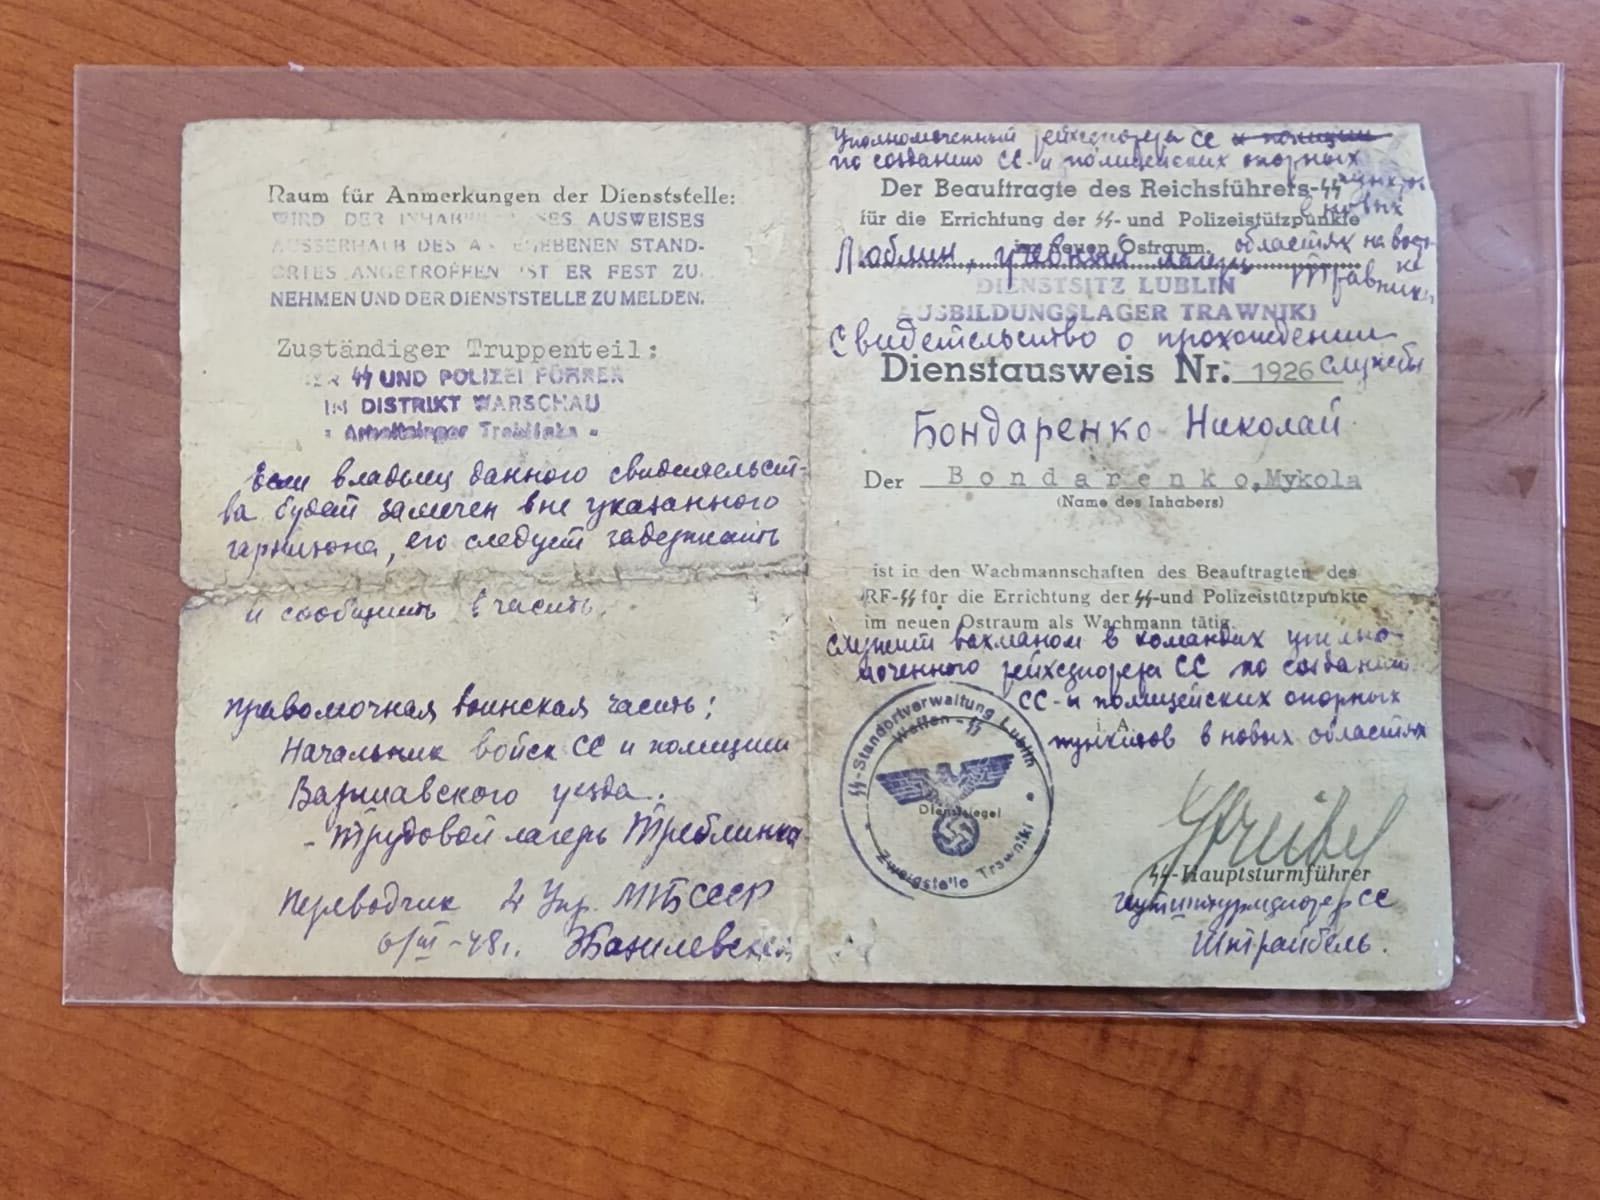 Raum für Anmerkungen der Dienststelle:
WIRD DER INHABER DIESES AUSWEISES
AUSSERHALB DES ANGEGEBENEN STAND-
ORTES ANGETROFFEN IST ER FEST ZU
NEHMEN UND DER DIENSTSTELLE ZU MELDEN.
Zuständiger Truppenteil:
DER SS UND POLIZEI FÜHRER
IM DISTRIKT WARSCHAU
- Arbeitslager Treblinka -
Если владелец данного свидетельст-
ва будет замечен вне указанного
гарнизона, его следует задержать
и сообщить в часть.
правомочная воинская часть:
Начальник войск СС и полиции
Варшавского уезда.
- Трудовой лагерь Треблинка
Переводчик 2 Упр. МГБ СССР
6/III-48г.
Уполномоченный рейхсфюрера СС и полиции
по созданию СС- и полицейских опорных
пунктов
Der Beauftragte des Reichsführers-SS
в новых
für die Errichtung der SS- und Polizeistützpunkte
im neuen Ostraum.
областях на восто-
ке
Люблин, учебный лагерь Травники
DIENSTSITZ LUBLIN
AUSBILDUNGSLAGER TRAWNIKI
Свидетельство о прохождении
службы
Dienstausweis Nr. 1926
Бондаренко Николай
Der Bondarenko, Mykola
(Name des Inhabers)
ist in den Wachmannschaften des Beauftragten des
RF-SS für die Errichtung der SS-und Polizeistützpunkte
im neuen Ostraum als Wachmann tätig.
служит вахманом в командах уполно-
моченного рейхсфюрера СС по созданию
СС-и полицейских опорных
i. A.
пунктов в новых областях
SS-Standortverwaltung Lublin
Waffen-SS
Dienstsiegel
Zweigstelle Trawniki
Streibel
SS-Hauptsturmführer
гауптштурмфюрер СС
Штрайбель.